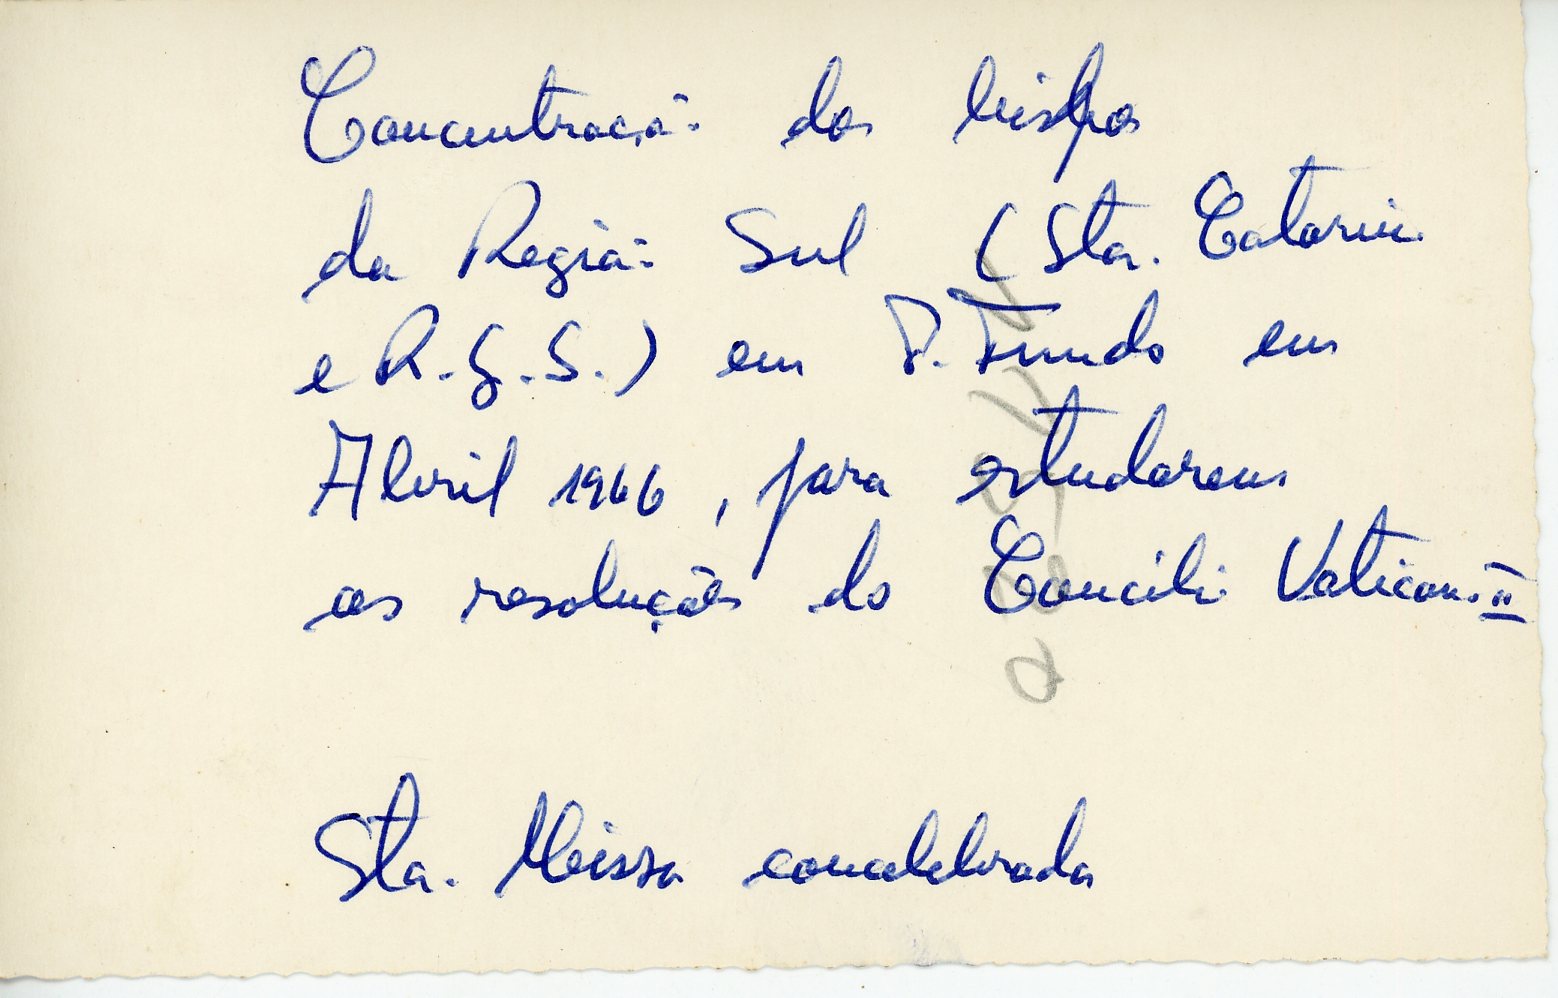 Concentração dos bispos
da Região Sul (Sta. Catarina
e R.G.S.) em P. Fundo em
Abril 1966, para estudarem
as resoluções do Concilio Vaticano II
Sta. Missa concelebrada